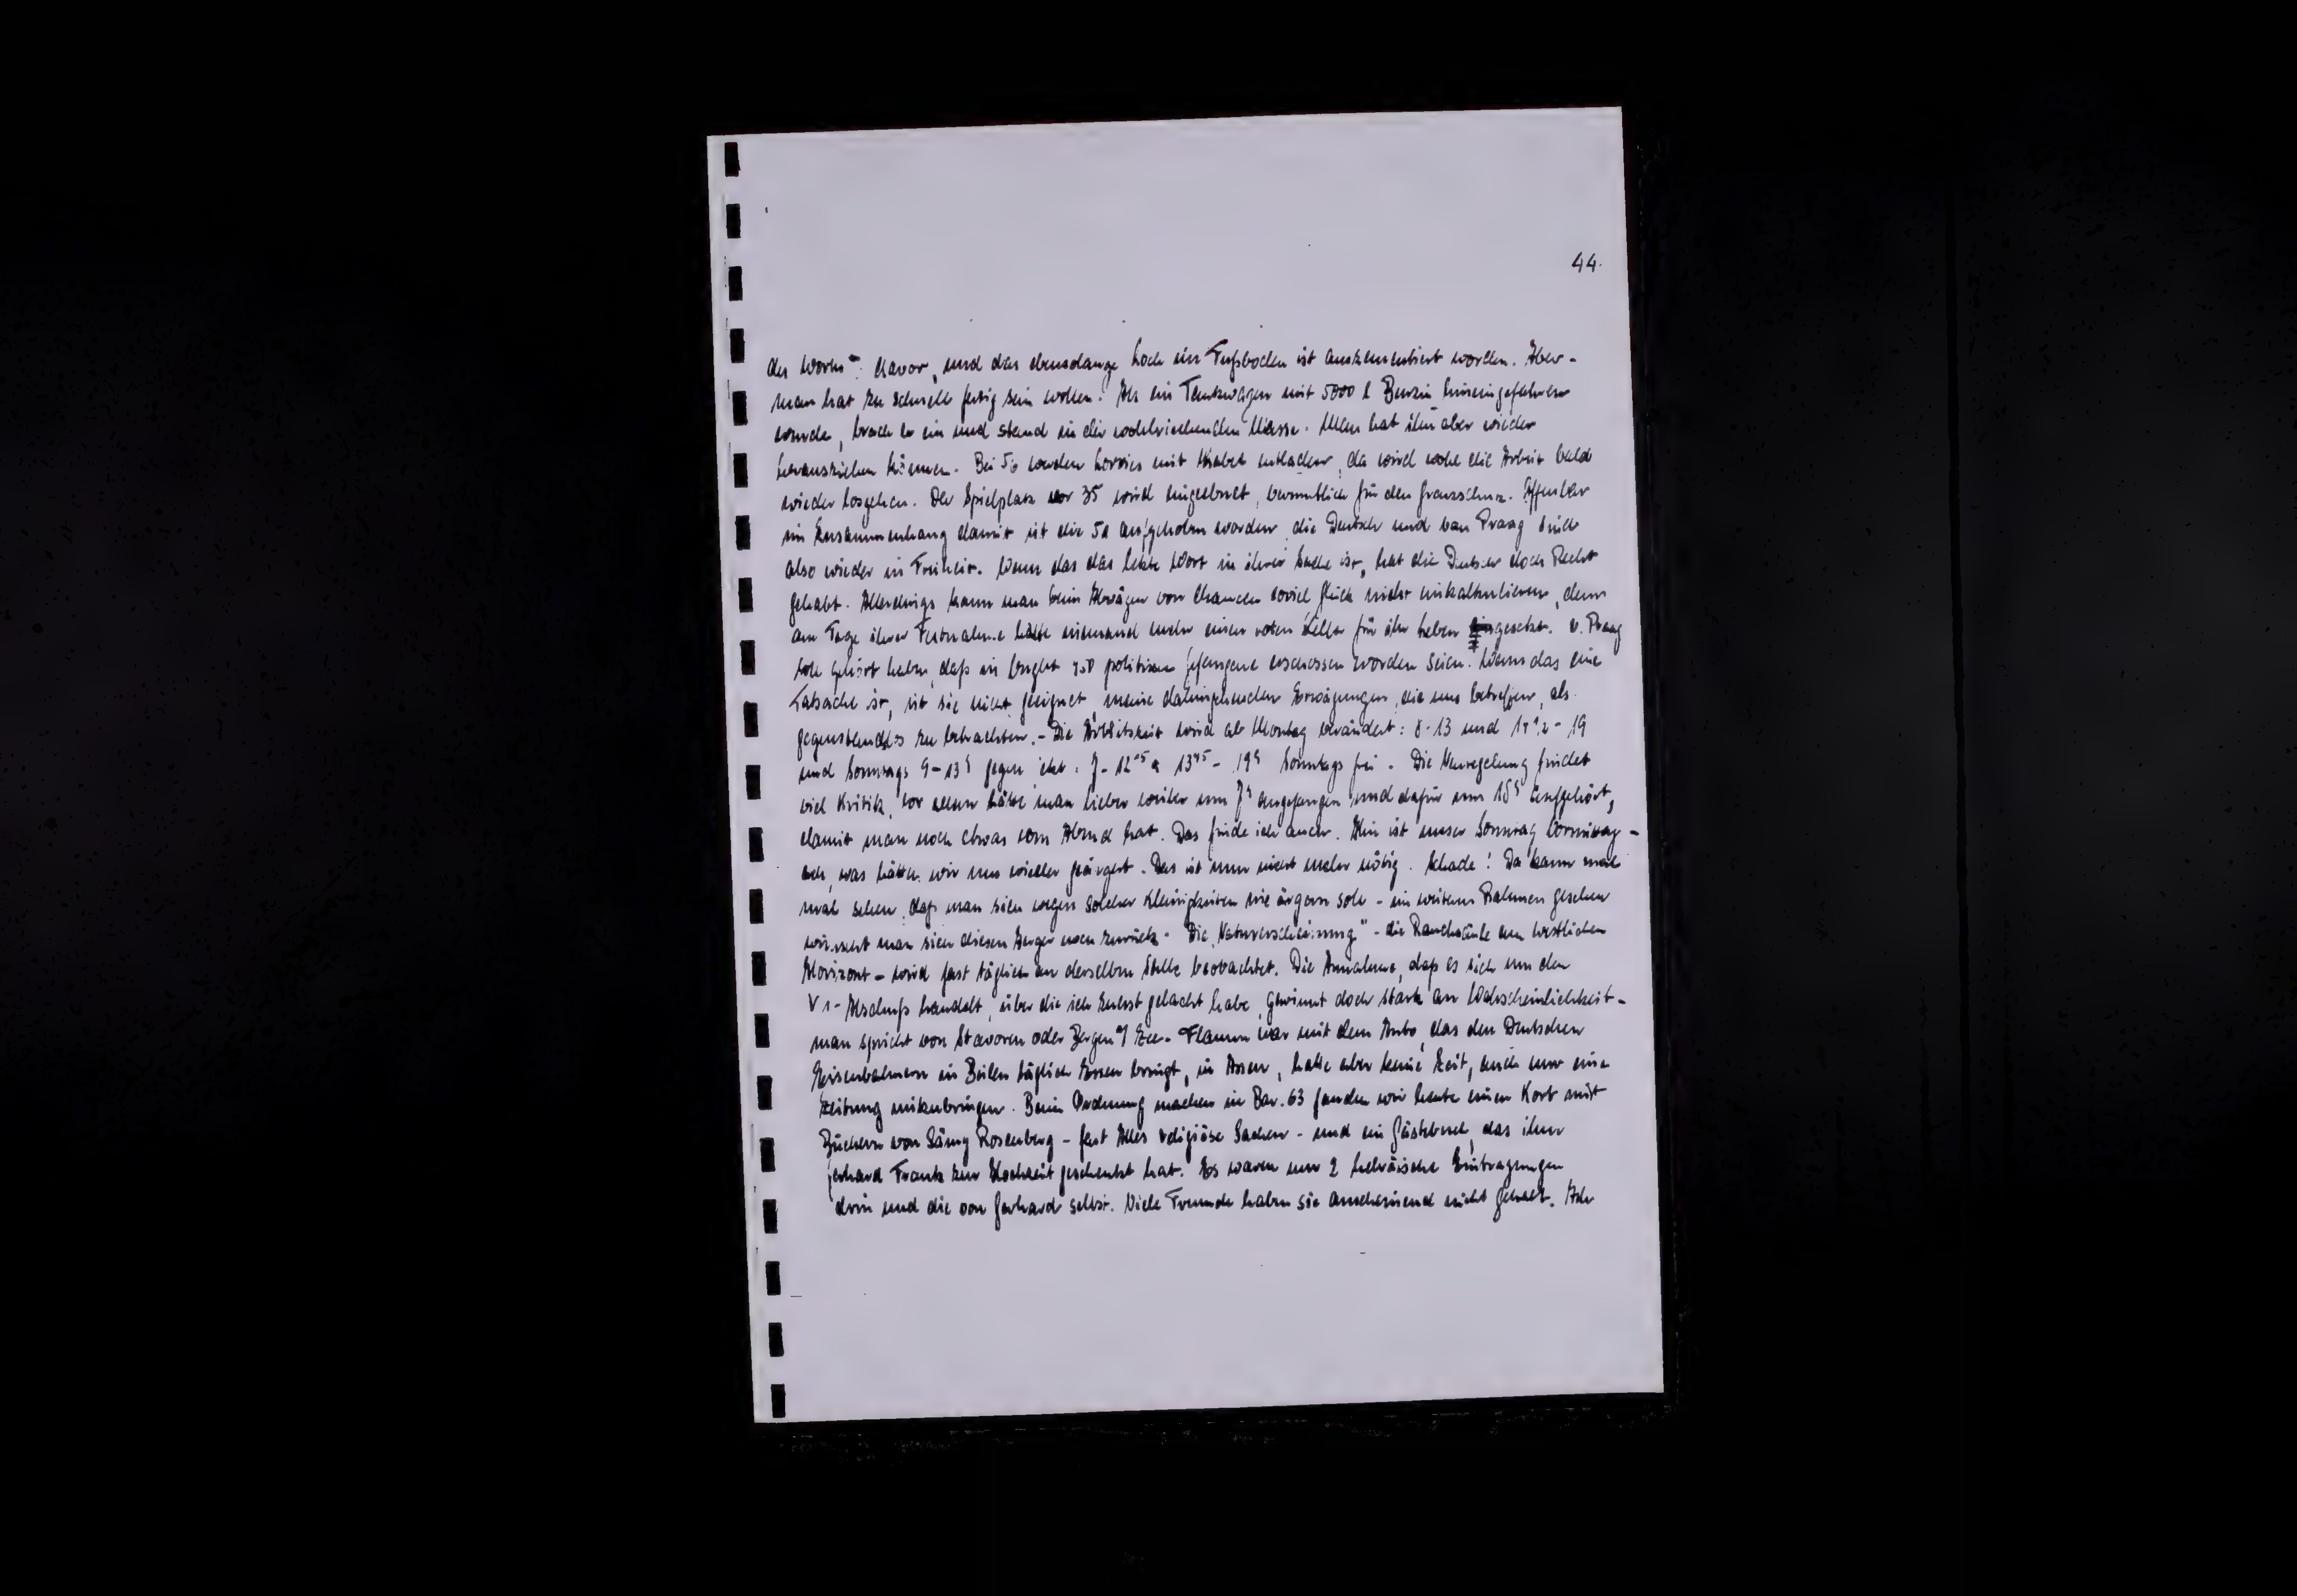 44.
des Worts": davor, und das ebensolange hoch im Fußboden ist auszementiert worden. Aber -
man hat zu schnell fertig sein wollen. Als ein Tankwagen mit 5000 l Benzin hineingefahren
wurde, brach er ein und stand in der wohlriechenden Masse. Man hat ihn aber wieder
herausziehen können. Bei 56 werden Lorries mit Kabel entladen, da wird wohl die Arbeit bald
wieder losgehen. Der Spielplatz vor 35 wird eingeebnet, vermutlich für den Grenzschutz. Offenbar
im Zusammenhang damit ist die 51 aufgehoben worden, die Deutsch und van Praag sind
also wieder in Freiheit. Wenn das das letzte Wort in ihrer Sache ist, hat die Deutsch doch Recht
gehabt. Allerdings kann man beim Abwägen von Chancen soviel Glück nicht einkalkulieren, denn
am Tage ihrer Festnahme hätte niemand mehr einen roten Heller für ihr Leben gesetzt. v. Praag
soll gehört haben, daß in politische Gefangene erschossen worden seien. Wenn das eine
Tatsache ist, ist sie nicht geeignet, meine dahingehenden Erwägungen, die uns betreffen, als
gegenstandslos zu betrachten. - Die Arbeitszeit wird ab Montag verändert: 8-13 und 14½ - 19
und Sonntags 9-13 h gegen jetzt: 7- 12 & 13⁴⁵ - 19 h Sonntags frei. Die Neuregelung findet
viel Kritik, vor allem hätte man lieber weiter um 7 h angefangen und dafür um 18 h aufgehört,
damit man noch etwas vom Abend hat. Das finde ich auch. Hin ist unser Sonntag Vormittag -
ach, was hätten wir uns wieder geärgert. Das ist nun nicht mehr nötig. Schade! Da kann man
mal sehen, daß man sich wegen solcher Kleinigkeiten nie ärgern soll - im weiteren Rahmen gesehen
wünscht man sich diesen Aerger noch zurück. Die "Naturerscheinung" - die Rauchsäule am westlichen
Horizont - wird fast täglich an derselben Stelle beobachtet. Die Annahme, daß es sich um den
V 1- Abschuß handelt, über die ich zuerst gelacht habe, gewinnt doch stark an Wahrscheinlichkeit -
man spricht von Stavoren oder Bergen a/ Zee. Flamm war mit dem Auto, das den Deutschen
Eisenbahnern in Beilen täglich Essen bringt, in Assen, hatte aber keine Zeit, auch nur eine
Zeitung mitzubringen. Beim Ordnung machen in Bar. 63 fanden wir heute einen Korb mit
Büchern von Rosenberg - fast Alles religiöse Sachen - und ein Gästebuch, das ihm
Gerhard Frank zur Hochzeit geschenkt hat. Es waren nur 2 hebräische Eintragungen
drin und die von Gerhard selbst. Viele Freunde haben sie anscheinend nicht gehabt.